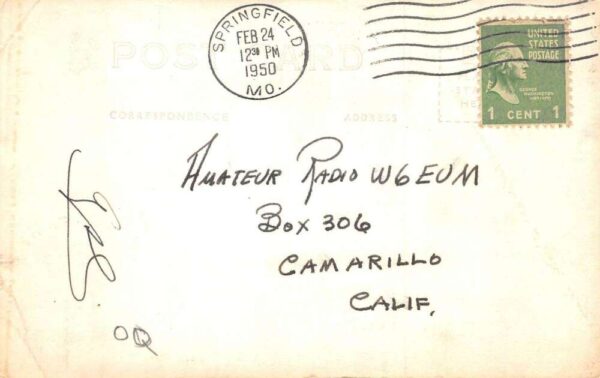 SPRINGFIELD
FEB 24
12 30 PM
1950
MO.
UNITED
STATES
POSTAGE
GEORGE
WASHINGTON
1 CENT 1
POST CARD
CORRESPONDENCE
ADDRESS
AMATEUR RADIO W6EUM
BOX 306
CAMARILLO
CALIF.
OQ